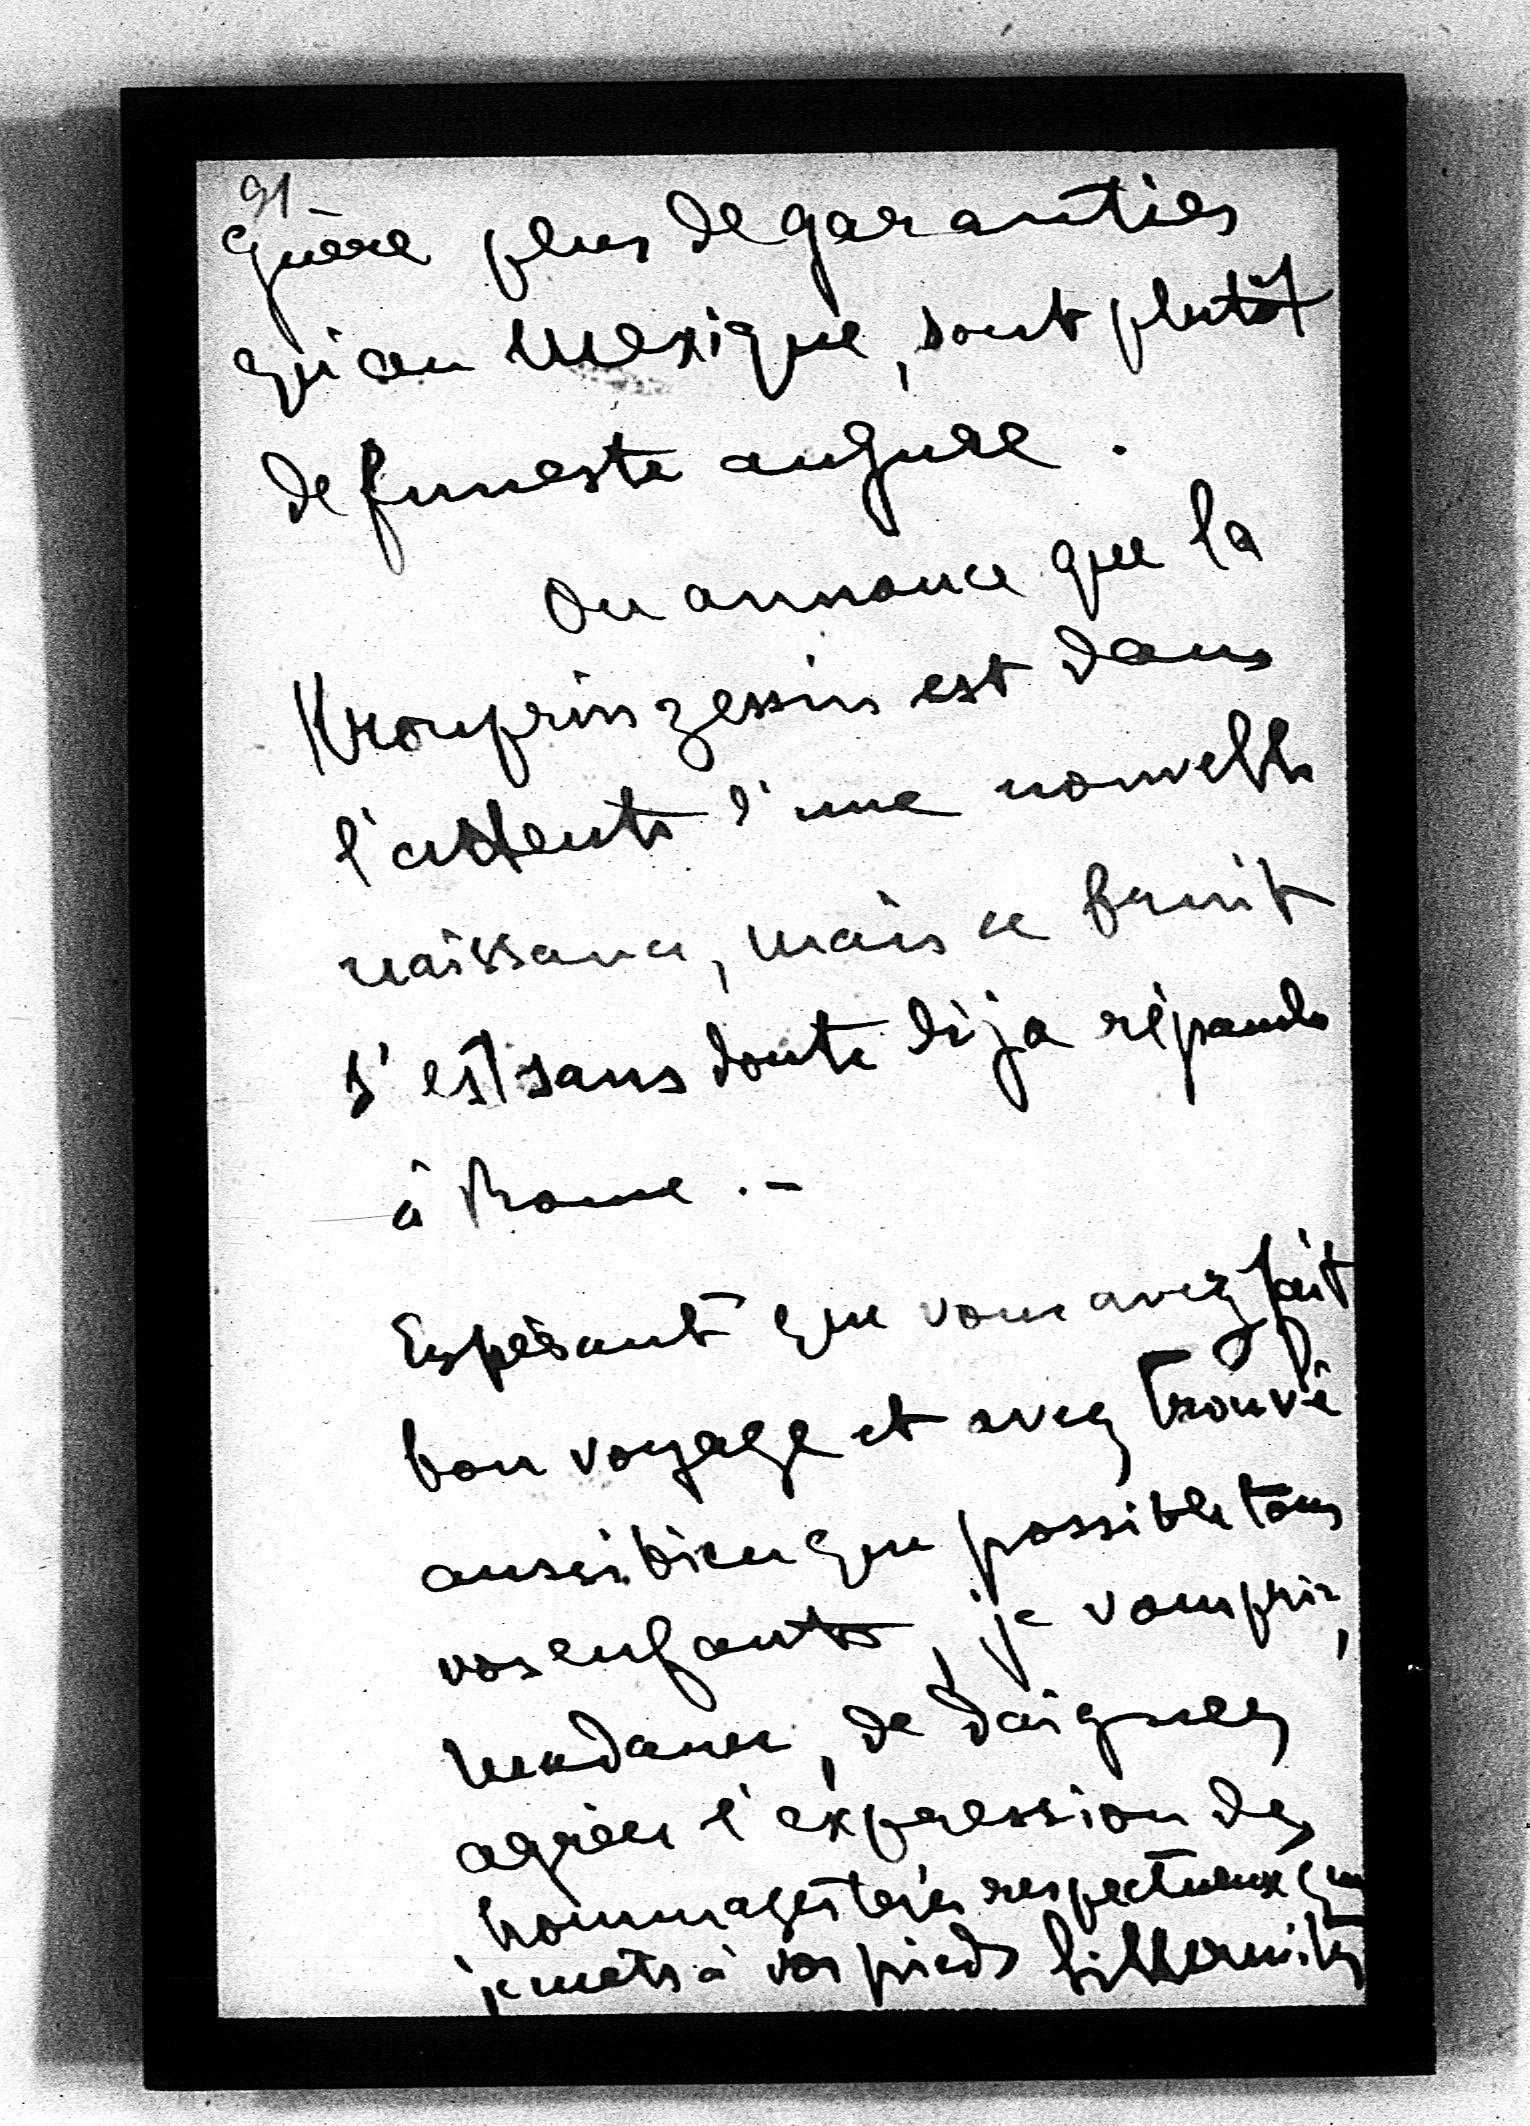 91
guère plus de garanties
qu'au Mexique, sont plutôt
de funeste augure.
On annonce que la
Kronprinzessin est dans
l'attente d'une nouvelle
naissance, mais ce bruit
s'est sans doute déjà répandu
à Rome. -
Espérant que vous avez fait
bon voyage et avez trouvé
aussi bien que possible tous
vos enfants, je vous prie,
Madame, de daigner
agréer l'expression des
hommages très respectueux que
je mets à vos pieds